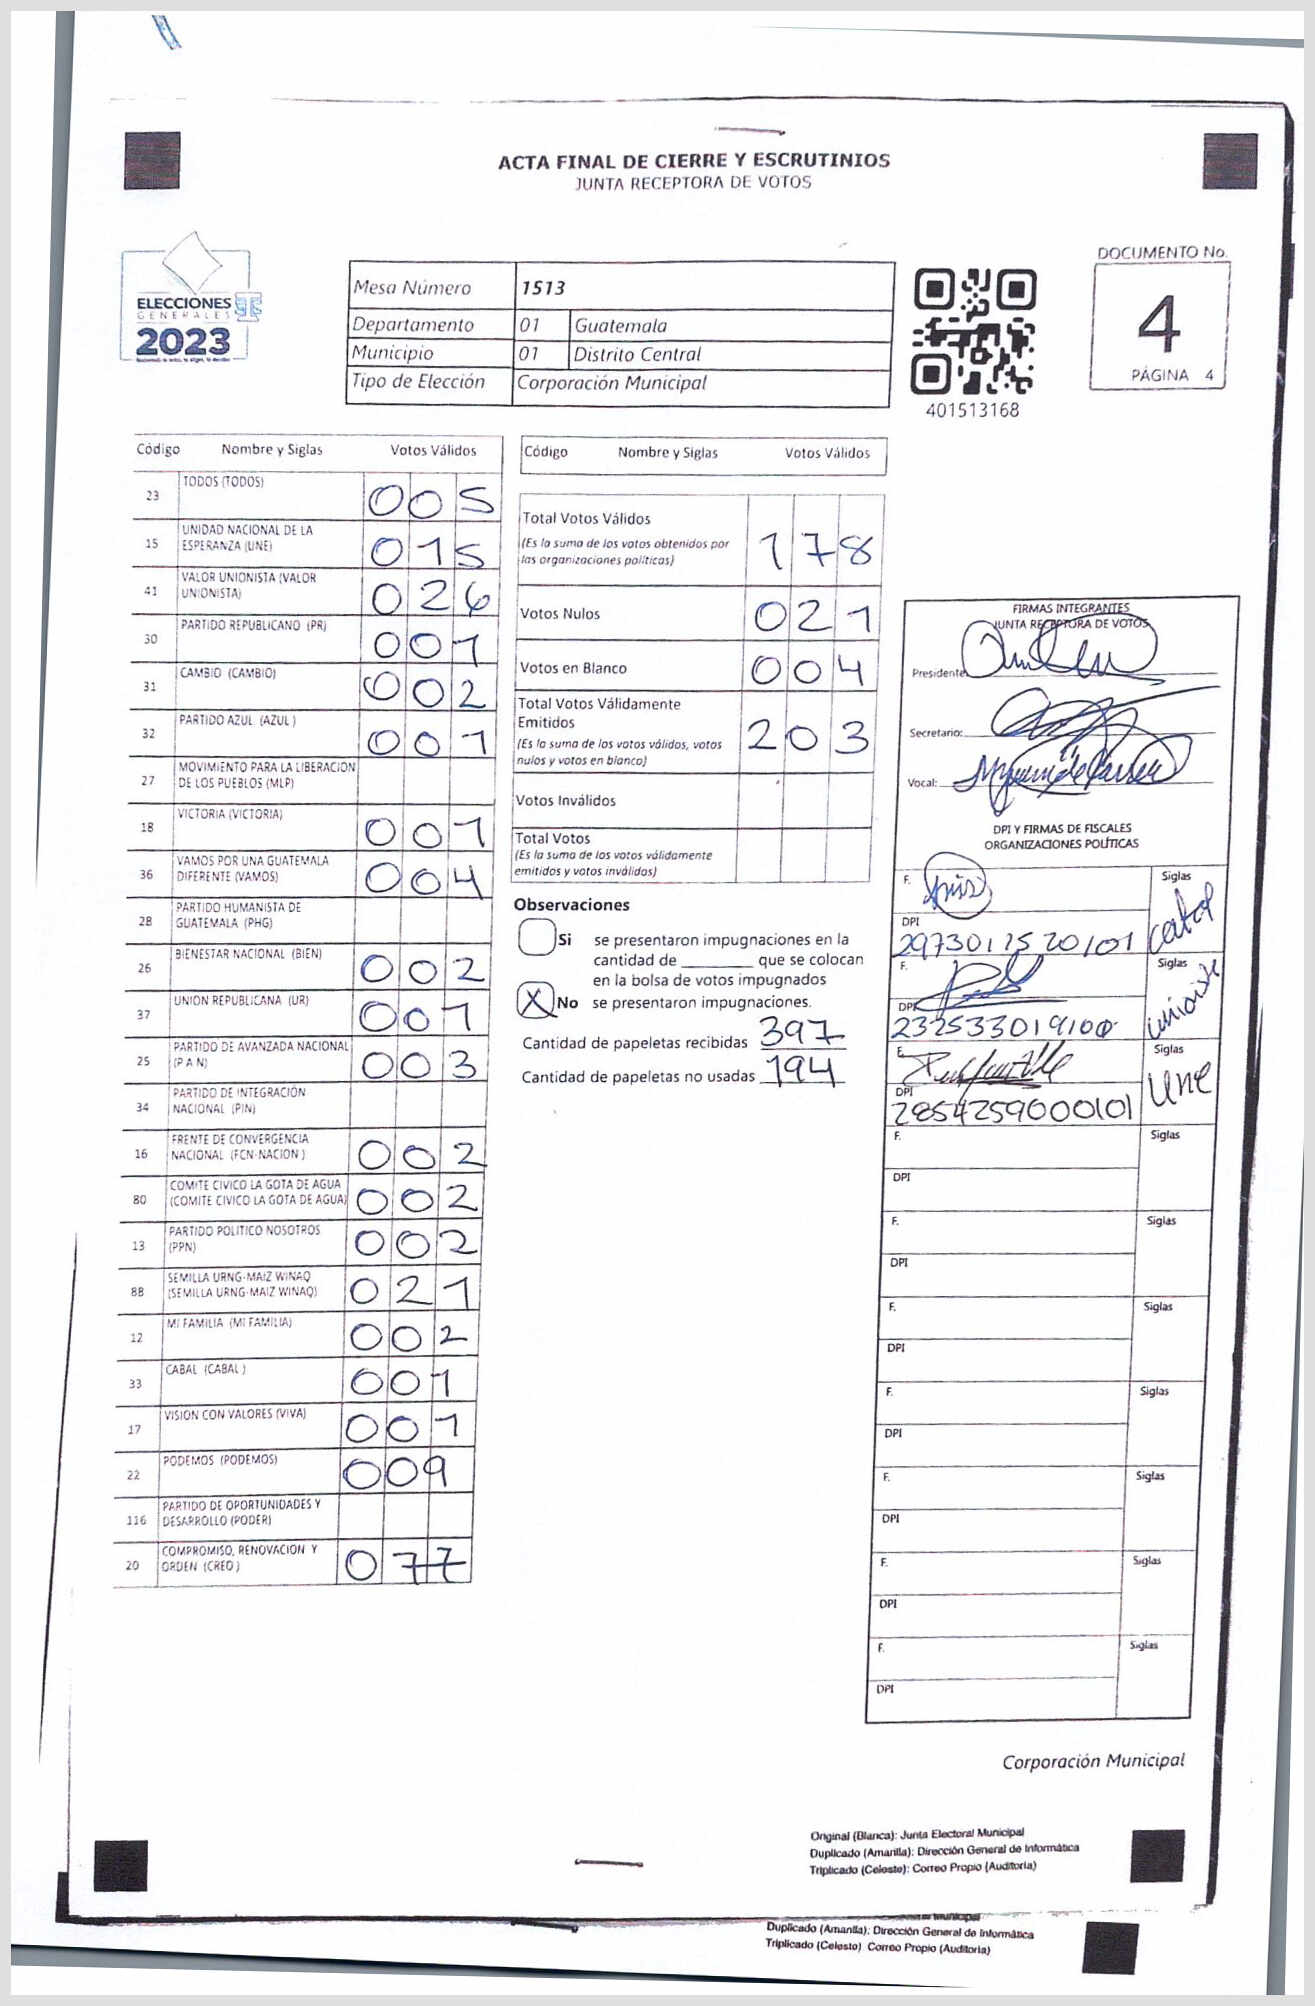 ACTA FINAL DE CIERRE Y ESCRUTINIOS
JUNTA RECEPTORA DE VOTOS
ELECCIONES
GENERALES
2023
Mesa Número 1513
Departamento 01 Guatemala
Municipio 01 Distrito Central
Tipo de Elección Corporación Municipal
401513168
DOCUMENTO No.
4
PÁGINA 4
Código Nombre y Siglas Votos Válidos
23 TODOS (TODOS) 005
15 UNIDAD NACIONAL DE LA
ESPERANZA (UNE) 015
41 VALOR UNIONISTA (VALOR
UNIONISTA) 026
30 PARTIDO REPUBLICANO (PR) 001
31 CAMBIO (CAMBIO) 002
32 PARTIDO AZUL (AZUL ) 001
27 MOVIMIENTO PARA LA LIBERACION
DE LOS PUEBLOS (MLP)
18 VICTORIA (VICTORIA) 001
36 VAMOS POR UNA GUATEMALA
DIFERENTE (VAMOS) 004
28 PARTIDO HUMANISTA DE
GUATEMALA (PHG)
26 BIENESTAR NACIONAL (BIEN) 002
37 UNION REPUBLICANA (UR) 001
25 PARTIDO DE AVANZADA NACIONAL
(P A N) 003
34 PARTIDO DE INTEGRACIÓN
NACIONAL (PIN)
16 FRENTE DE CONVERGENCIA
NACIONAL (FCN-NACION ) 002
80 COMITE CIVICO LA GOTA DE AGUA
(COMITE CIVICO LA GOTA DE AGUA) 002
13 PARTIDO POLITICO NOSOTROS
(PPN) 002
88 SEMILLA URNG-MAIZ WINAQ
(SEMILLA URNG-MAIZ WINAQ) 021
12 MI FAMILIA (MI FAMILIA) 002
33 CABAL (CABAL ) 001
17 VISION CON VALORES (VIVA) 001
22 PODEMOS (PODEMOS) 009
116 PARTIDO DE OPORTUNIDADES Y
DESARROLLO (PODER)
20 COMPROMISO, RENOVACION Y
ORDEN (CREO ) 077
Código Nombre y Siglas Votos Válidos
Total Votos Válidos
(Es la suma de los votos obtenidos por
las organizaciones políticas) 178
Votos Nulos 021
Votos en Blanco 004
Total Votos Válidamente
Emitidos
(Es la suma de los votos válidos, votos
nulos y votos en blanco) 203
Votos Inválidos
Total Votos
(Es la suma de los votos válidamente
emitidos y votos inválidos)
Observaciones
Si se presentaron impugnaciones en la
cantidad de ________ que se colocan
en la bolsa de votos impugnados
X No se presentaron impugnaciones.
Cantidad de papeletas recibidas 397
Cantidad de papeletas no usadas 194
FIRMAS INTEGRANTES
JUNTA RECEPTORA DE VOTOS
Presidente:
Secretario:
Vocal:
DPI Y FIRMAS DE FISCALES
ORGANIZACIONES POLÍTICAS
F. Siglas
DPI
F. Siglas
DPI
F. Siglas Une
DPI
2854259000101
F. Siglas
DPI
F. Siglas
DPI
F. Siglas
DPI
F. Siglas
DPI
F. Siglas
DPI
F. Siglas
DPI
F. Siglas
DPI
Corporación Municipal
Original (Blanca): Junta Electoral Municipal
Duplicado (Amarilla): Dirección General de Informática
Triplicado (Celeste): Correo Propio (Auditoria)
Duplicado (Amarilla): Dirección General de Informática
Triplicado (Celeste) Correo Propio (Auditoria)